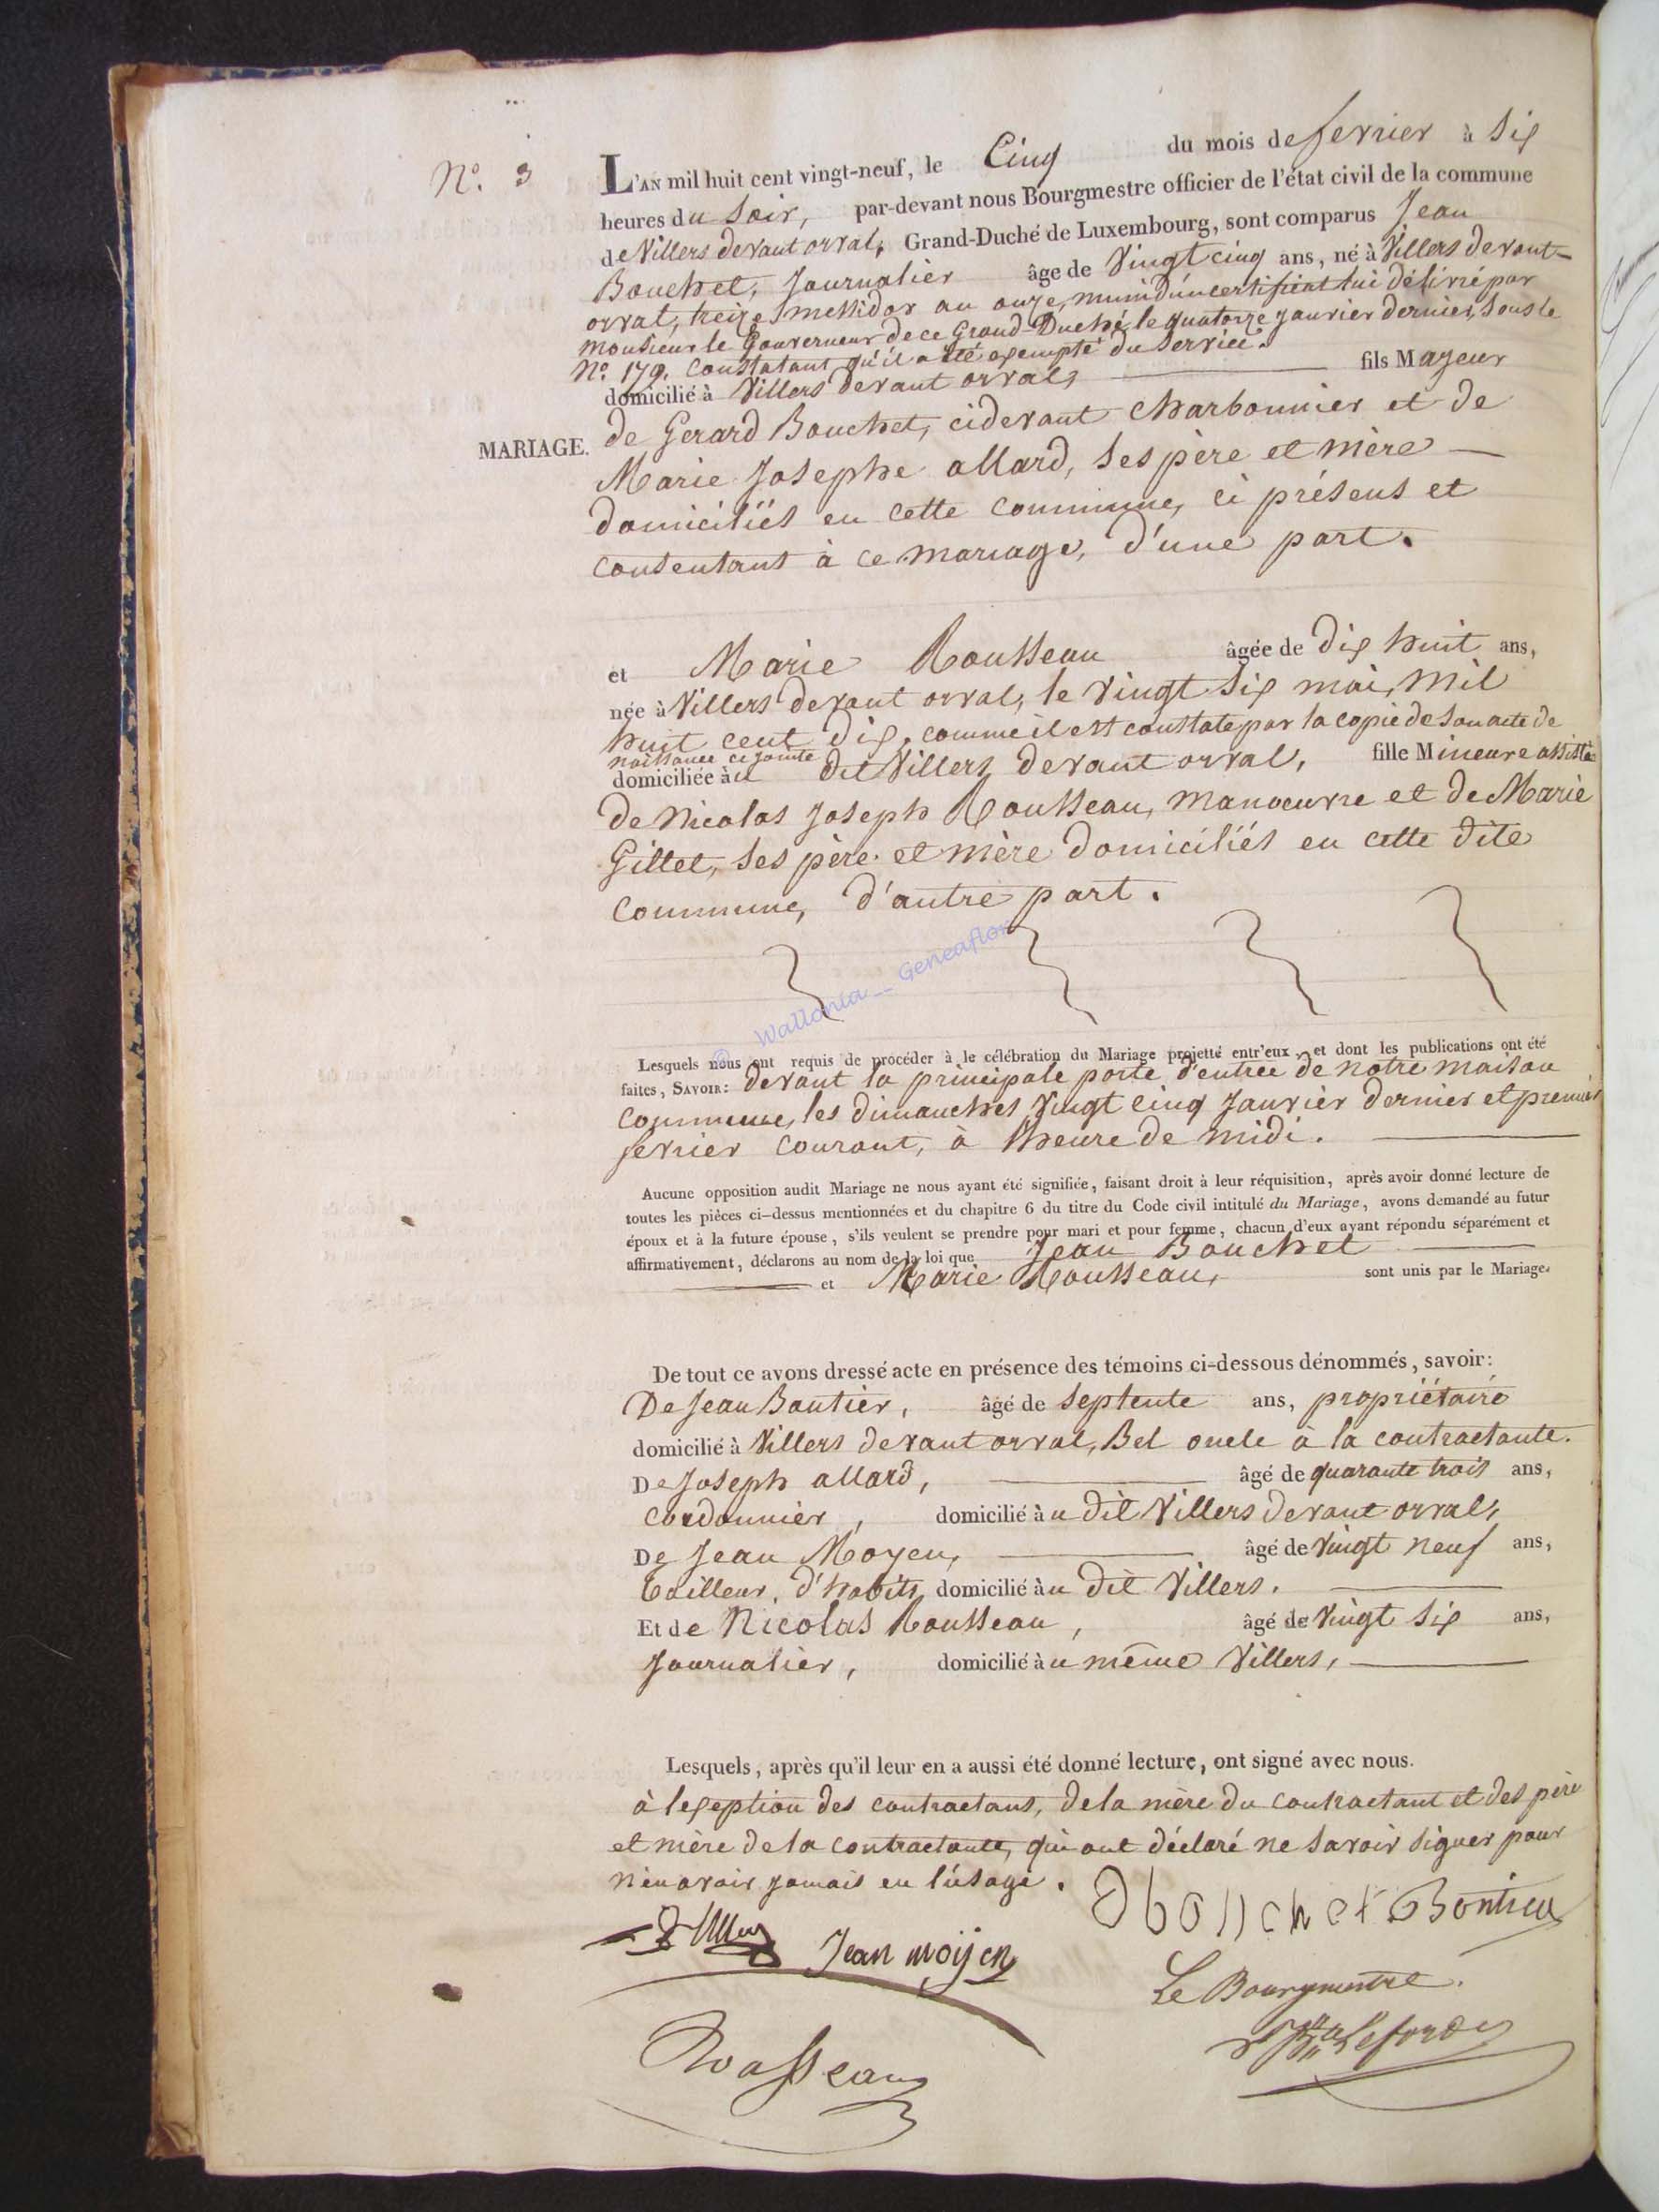 N.º 3
L'AN mil huit cent vingt-neuf, le Cinq du mois de fevrier à Six
heures du Soir, par-devant nous Bourgmestre officier de l'état civil de la commune
de Villers devant orval, Grand-Duché de Luxembourg, sont comparus Jean
Bouchet, Journalier âge de Vingt cinq ans, né à Villers devant-
orval, treize messidor an onze, muni d'un certificat lui délivré par
monsieur le Gouverneur de ce Grand-Duché le quatorze janvier dernier, sous le
N.º 179. Constatant qu'il a été exempté du Service.
domicilié à Villers devant orval, fils Majeur
MARIAGE.
de Gerard Bouchet, cidevant charbonnier et de
Marie Josephe allard, ses père et mère
domiciliés en cette commune, ci présens et
consentant à ce mariage, d'une part.
et Marie Rousseau âgée de dix huit ans,
née à Villers devant orval, le vingt six mai, mil
huit cent dix, comme il est constaté par la copie de son acte de
naissance ci jointe
domiciliée àu dit Villers devant orval, fille Mineure assistée
de Nicolas Joseph Rousseau, manoeuvre et de Marie
Gillet, ses père et mère domiciliés en cette dite
Commune, d'autre part.
© Wallonia__Geneaflor
Lesquels nous ont requis de procéder à le célébration du Mariage projetté entr'eux, et dont les publications ont été
faites, SAVOIR: devant la principale porte d'entrée de notre maison
commune, les dimanches vingt cinq Janvier dernier et premier
fevrier courant, à l'heure de midi.
Aucune opposition audit Mariage ne nous ayant été signifiée, faisant droit à leur réquisition, après avoir donné lecture de
toutes les pièces ci-dessus mentionnées et du chapitre 6 du titre du Code civil intitulé du Mariage, avons demandé au futur
époux et à la future épouse, s'ils veulent se prendre pour mari et pour femme, chacun d'eux ayant répondu séparément et
affirmativement, déclarons au nom de la loi que Jean Bouchet
et Marie Rousseau, sont unis par le Mariage.
De tout ce avons dressé acte en présence des témoins ci-dessous dénommés, savoir:
De Jean Bontier, âgé de septente ans, propriétaire
domicilié à Villers devant orval, Bel oncle à la contractante.
De Joseph allard, âgé de quarante trois ans,
Cordonnier, domicilié àu dit Villers devant orval,
De Jean Moyen, âgé de vingt neuf ans,
tailleur d'habits, domicilié àu dit Villers.
Et de Nicolas Rousseau, âgé de vingt six ans,
Journalier, domicilié àu même Villers,
Lesquels, après qu'il leur en a aussi été donné lecture, ont signé avec nous.
à l'exeption des contractans, de la mère du contractant et des père
et mère de la contractante, qui ont déclaré ne savoir signer pour
n'en avoir jamais eu l'usage.
Bouchet Bontier
Jean moijen
Le Bourgmestre.